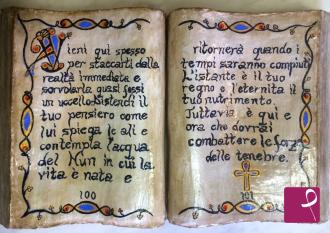 Vieni qui spesso
per staccarti dalla
realtà immediata e
sorvolarla quasi fossi
un uccello. Distendi il
tuo pensiero come
lui spiega le ali e
contempla l'acqua
del Nun in cui la
vita è nata e
100
ritornerà quando i
tempi saranno compiuti
L'istante è il tuo
regno e l'eternità il
tuo nutrimento.
Tuttavia è qui e
ora che dovrai
combattere le forze
delle tenebre.
101